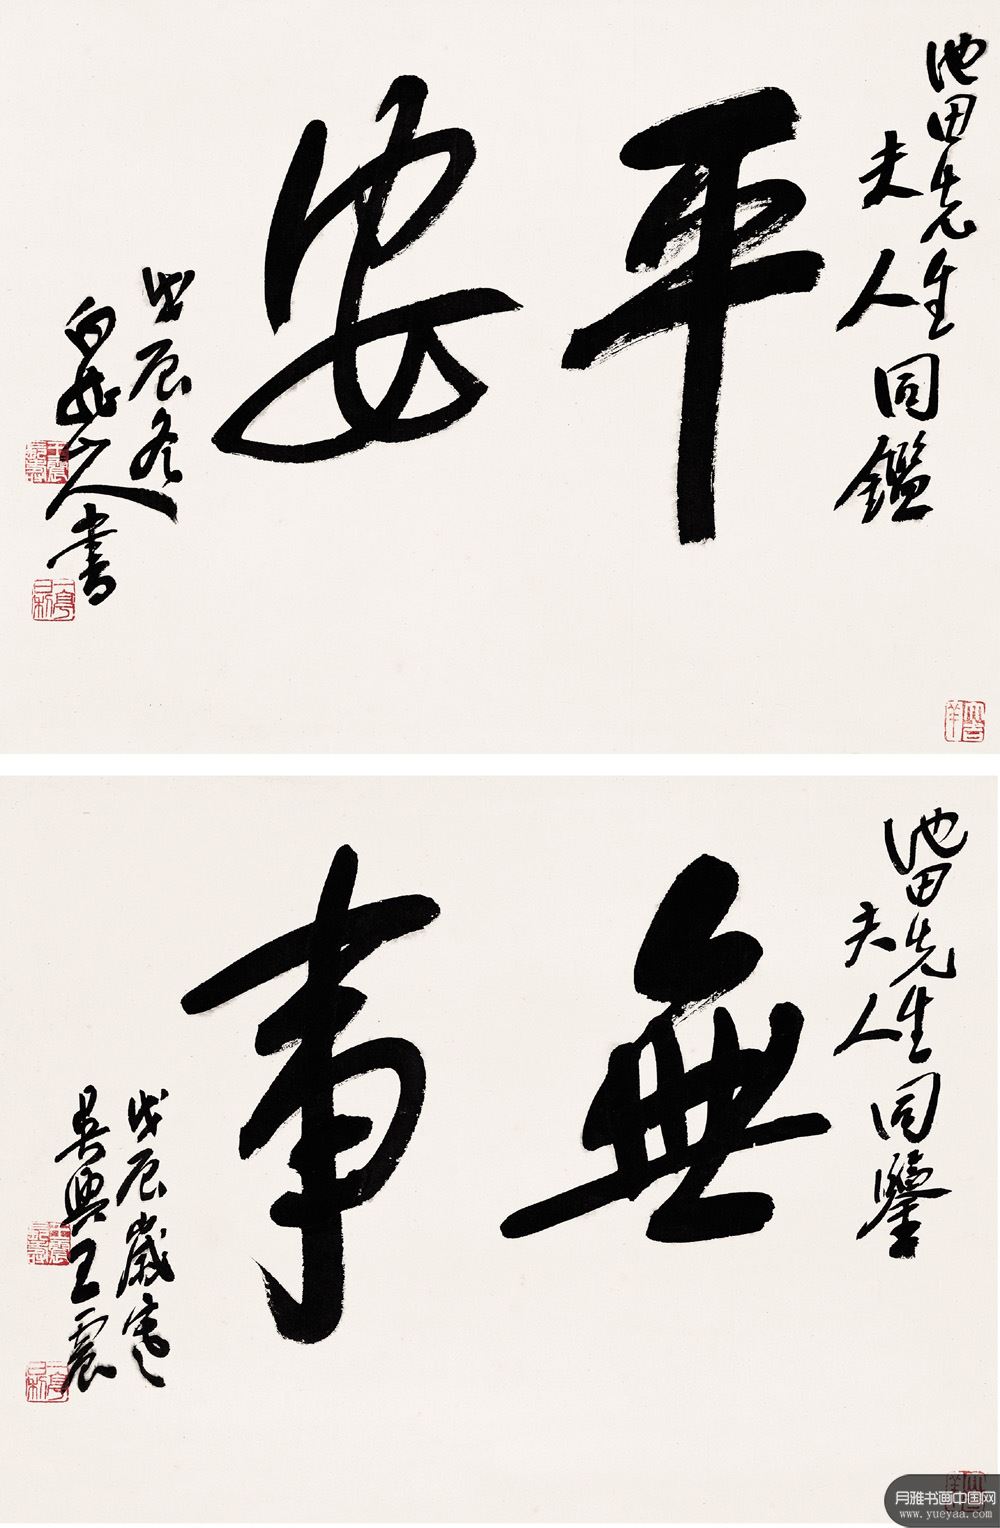 池田先生
夫人同鑑
平安
戊辰冬
白龍山人書
池田先生
夫人同鑒
無事
戊辰歲寒
吳興王震
月雅书画中国网
www.yueyaa.com